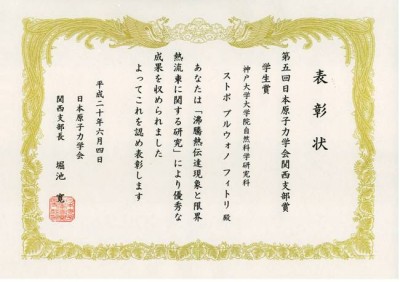 表彰状
第五回日本原子力学会関西支部賞
学生賞
神戸大学大学院自然科学研究科
ストポ プルウォノ フィトリ 殿
あなたは「沸騰熱伝達現象と限界
熱流束に関する研究」により優秀な
成果を収められました
よってこれを認め表彰します
平成二十年六月四日
日本原子力学会
関西支部長 堀池 寛